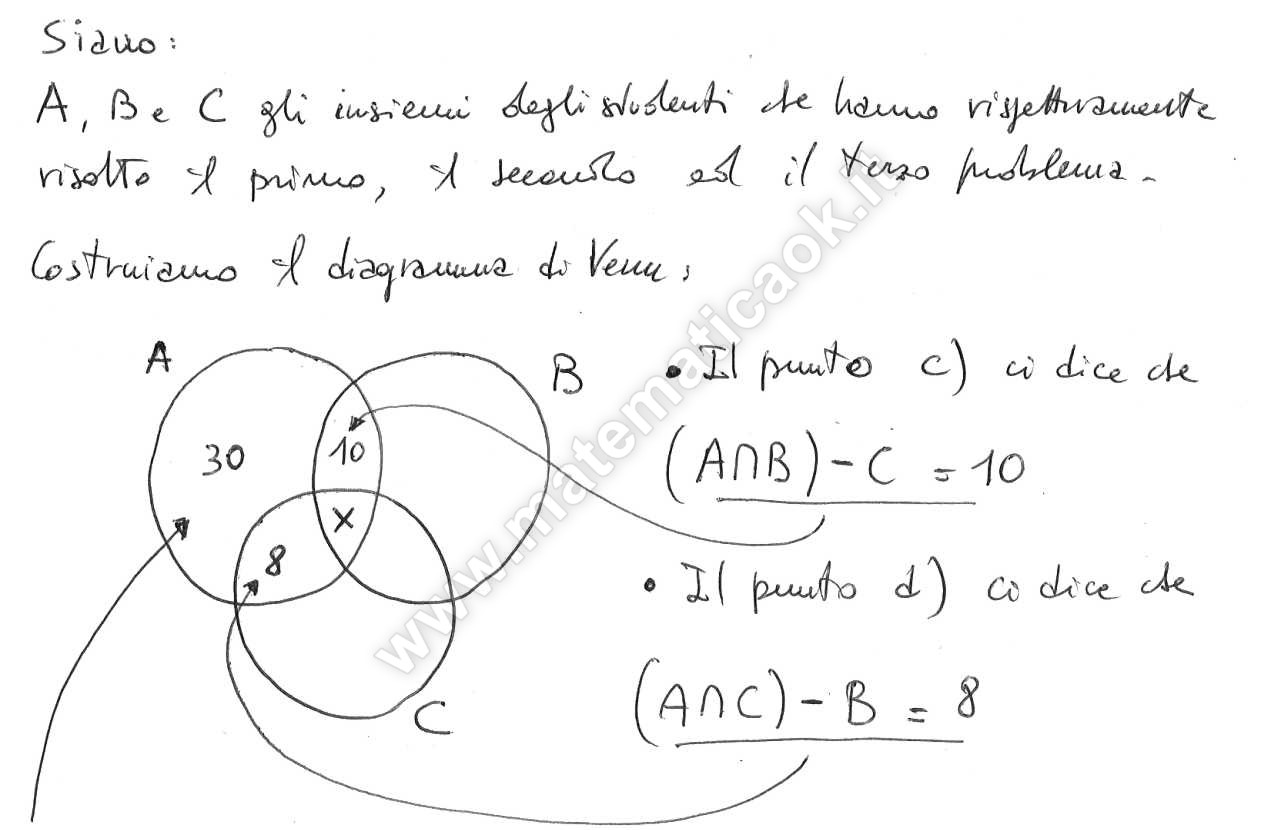 Siano:
A, B e C gli insiemi degli studenti che hanno rispettivamente
risolto il primo, il secondo ed il terzo problema.
Costruiamo il diagramma di Venn:
A
B
• Il punto c) ci dice che
30
10
(A∩B) - C = 10
X
8
• Il punto d) ci dice che
(A∩C) - B = 8
C
www.matematicaok.it